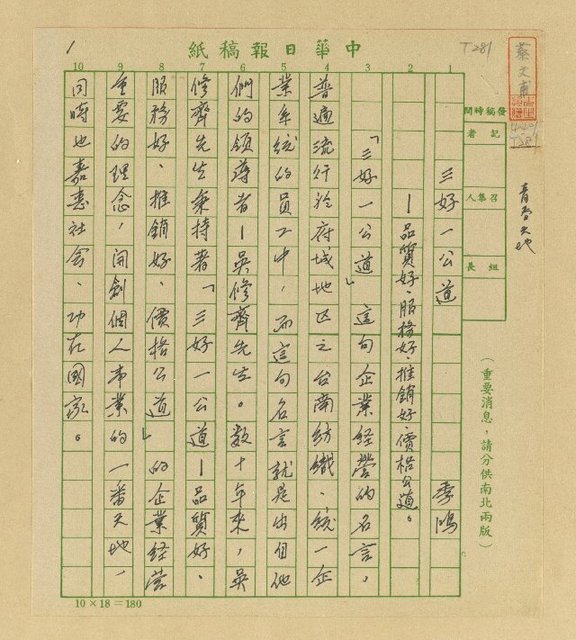 中華日報稿紙
T281
蔡文甫
發稿時間
記者
召集人
組長
青番天地
(重要消息,請分供南北兩版)
1
1 2 3 4 5 6 7 8 9 10
三好一公道 季鴻
—品質好.服務好.推銷好.價格公道。
「三好一公道」這句企業経營的名言,
普遍流行於府城地区之台南紡織、統一企
業系統的員工中,而這句名言就是出自他
們的領導者—吳修齊先生。数十年來,吳
修齊先生秉持著「三好一公道—品質好、
服務好、推銷好、價格公道」的企業経营
重要的理念,開創個人事業的一番天地,
同時也嘉惠社会、功在國家。
10×18=180